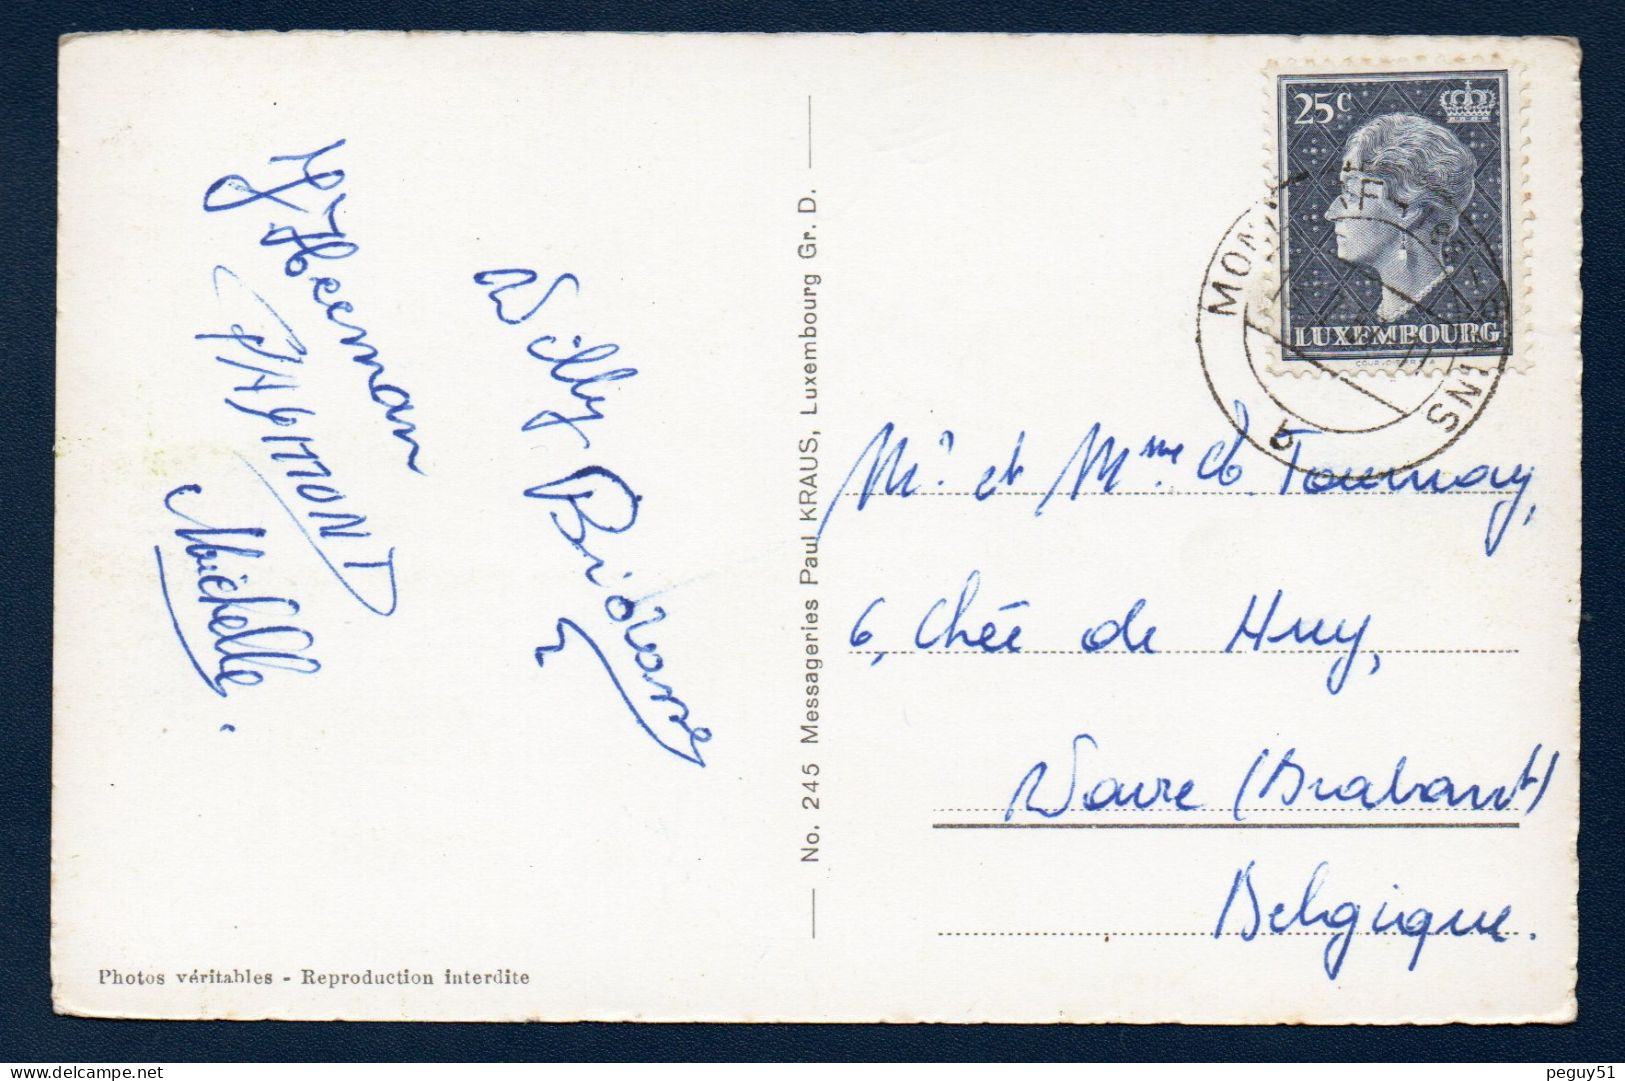 J. Heeman
Michelle.
Willy
25c
LUXEMBOURG
MONDORF-LES-BAINS
No. 245 Messageries Paul KRAUS, Luxembourg Gr. D.
Mr. et Mme Tournay,
6, Chée de Huy,
Wavre (Brabant)
Belgique.
Photos véritables - Reproduction interdite
delcampe.net
peguy51